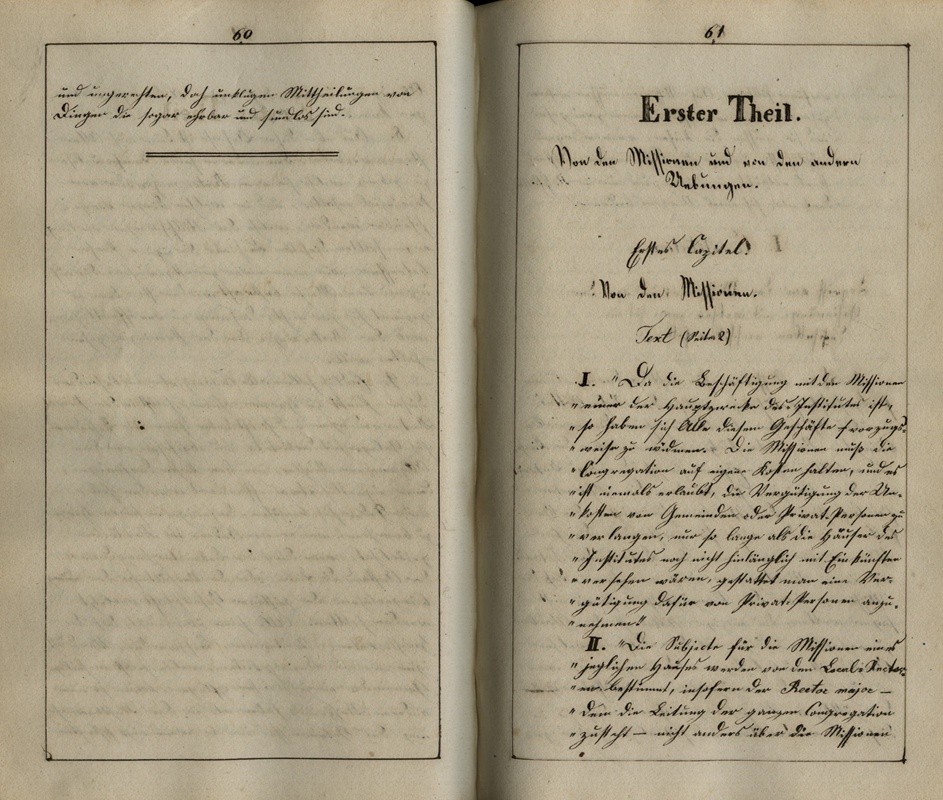 60
und ungerechten, doch unklugen Mittheilungen von
Dingen die sogar ehrbar und sündlos sind.
61
Erster Theil.
Von den Missionen und von den andern
Uebungen.
Erstes Capitel.
Von den Missionen.
Text (Seite 2)
I. "Da die Beschäftigung mit den Missionen
" einer der Hauptzwecke des Institutes ist,
" so haben sich Alle diesem Geschäfte vorzugs-
" weise zu widmen. Die Missionen muß die
" Congregation auf eigene Kosten halten, und es
" ist niemals erlaubt, die Vergütigung der Un-
" kosten von Gemeinden oder Privat-Personen zu
" verlangen, nur so lange als die Häuser des
" Institutes noch nicht hinlänglich mit Einkünften
" versehen wären, gestattet man eine Ver-
" gütigung dafür von Privat-Personen anzu-
" nehmen."
II. "Die Subjecte für die Missionen eines
" jeglichen Hauses werden von den Local-Rector-
" en bestimmt, insofern der Rector major —
" dem die Leitung der ganzen Congregation
" zusteht — nicht anders über die Missionen